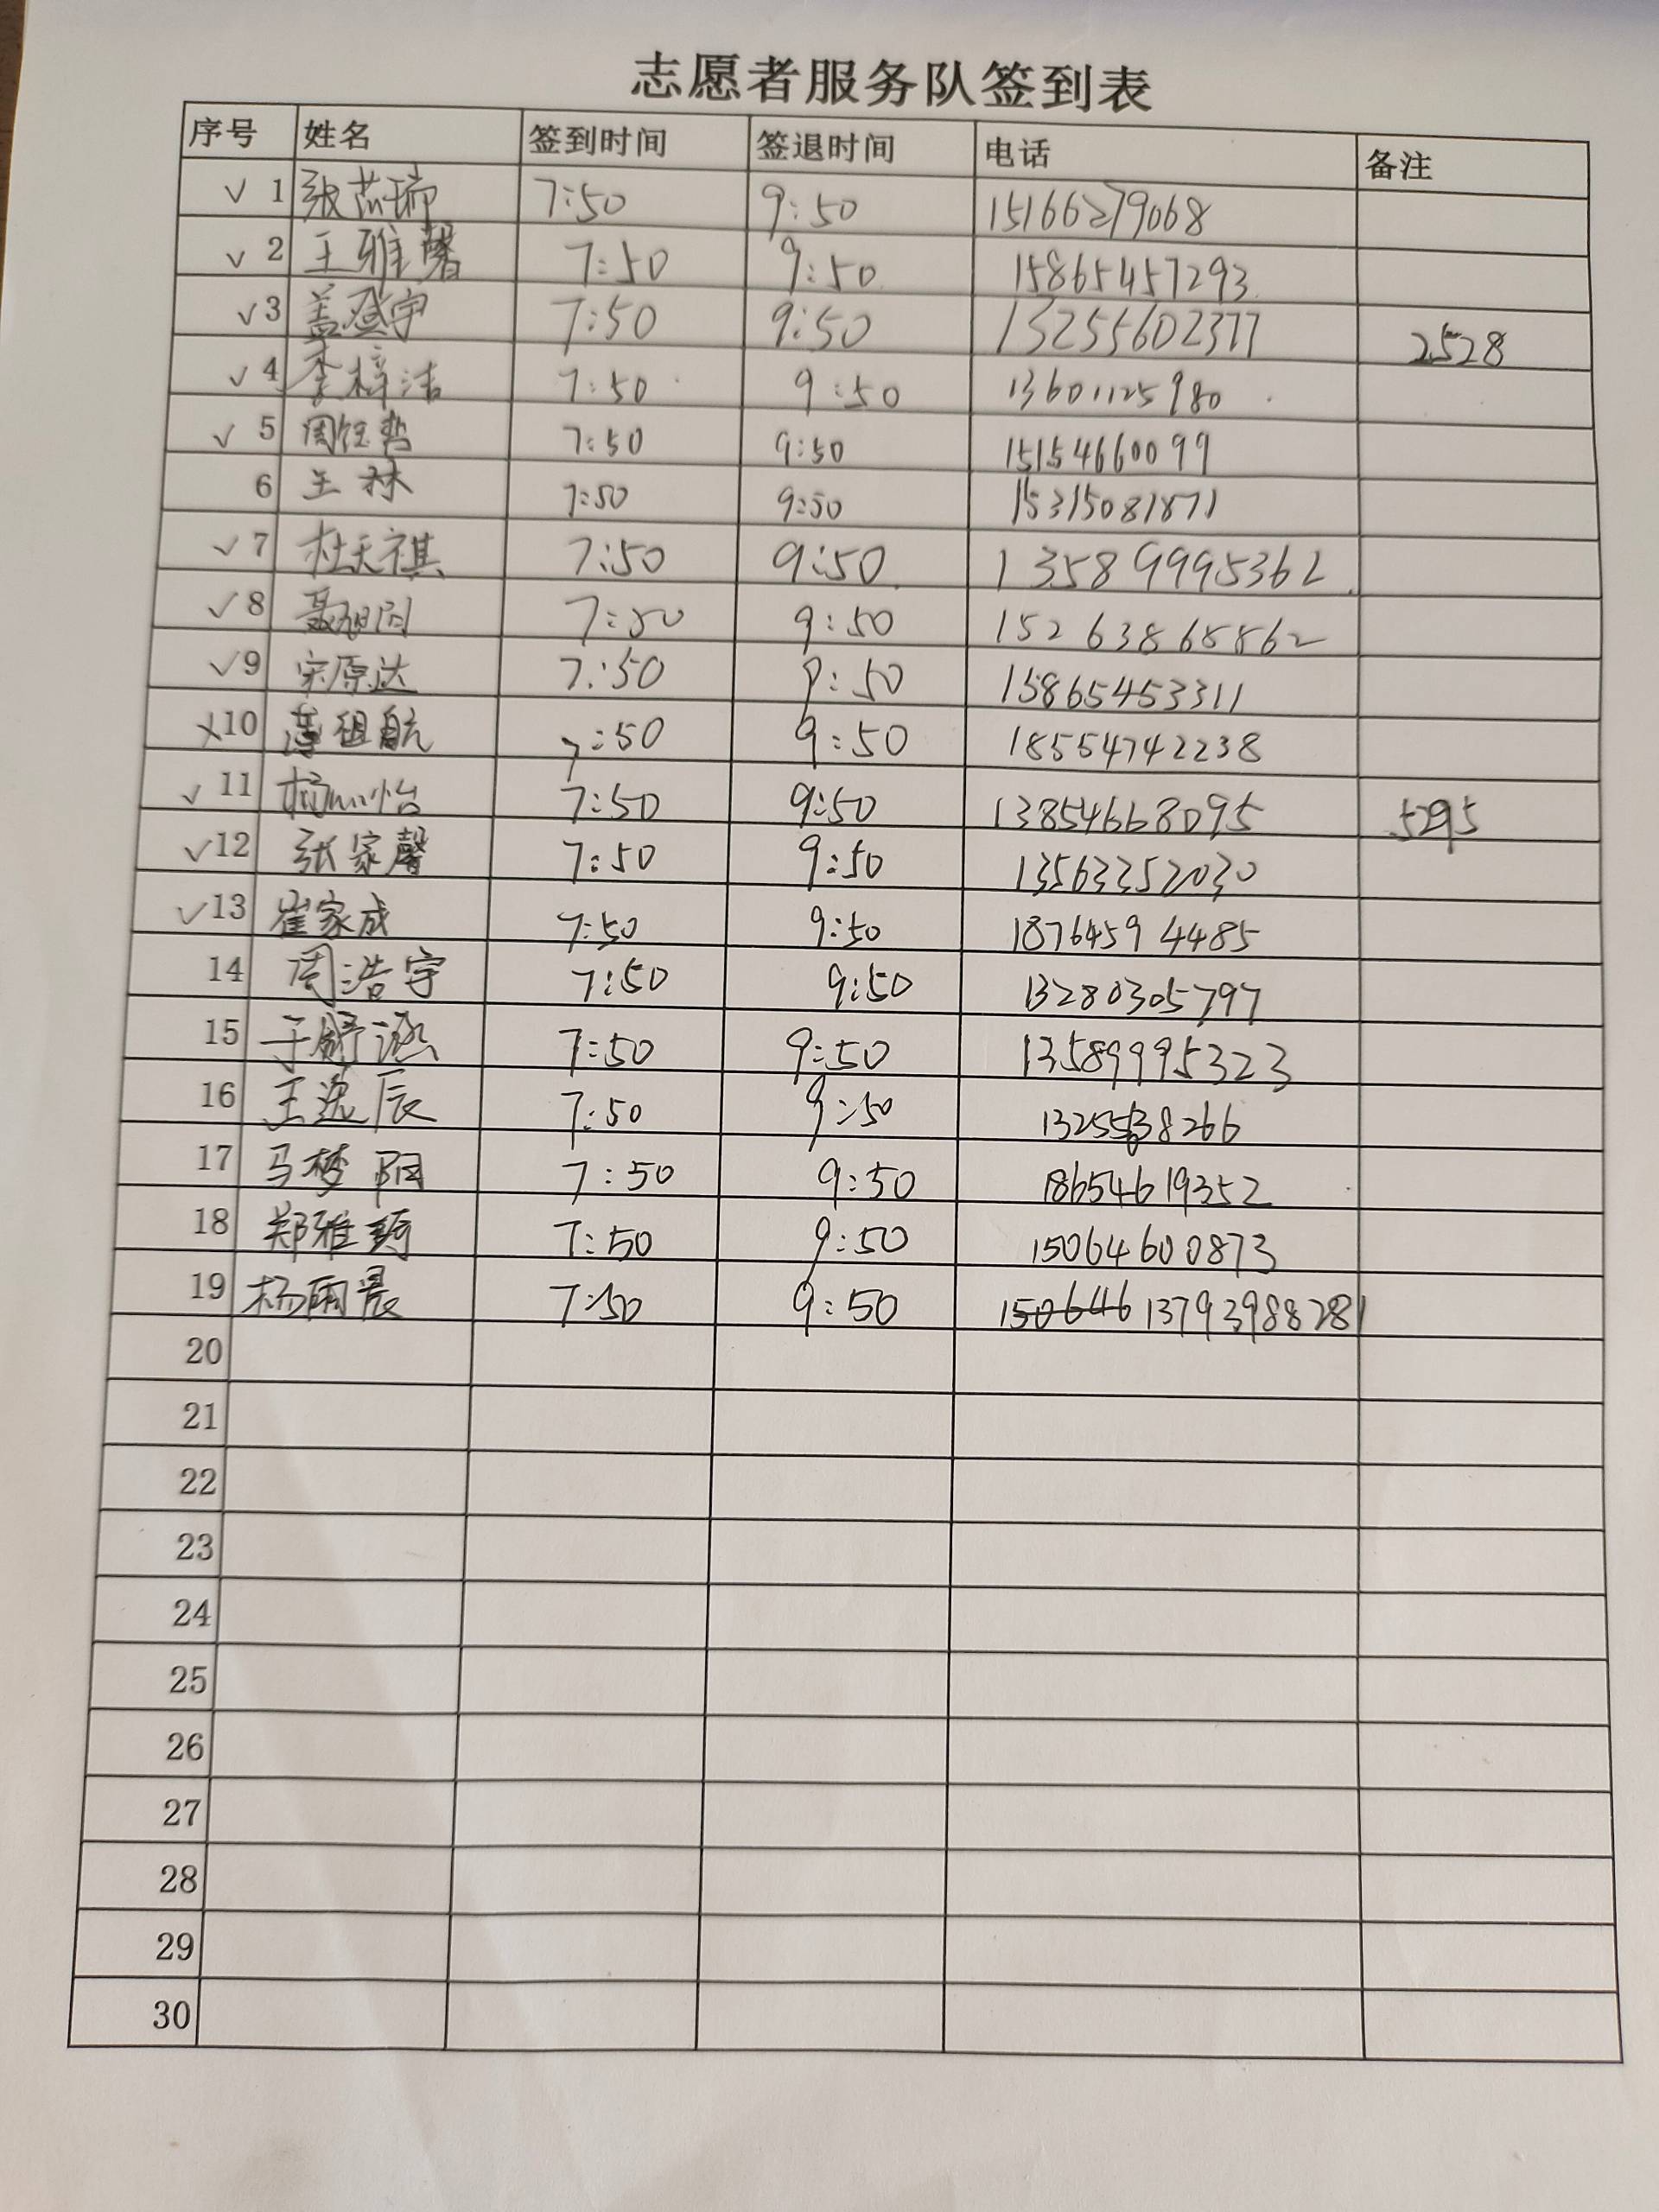 志愿者服务队签到表
序号 姓名 签到时间 签退时间 电话 备注
√ 1 张芯瑞 7:50 9:50 15166279068
√ 2 王雅馨 7:50 9:50 15865457293
√ 3 盖登宇 7:50 9:50 13255602377 2528
√ 4 李梓洁 7:50 9:50 13601125980
√ 5 周钰哲 7:50 9:50 15154660099
6 王林 7:50 9:50 15315081871
√ 7 杜天祺 7:50 9:50 135899995362
√ 8 7:50 9:50 15263868862
√ 9 宋原达 7:50 9:50 15865453311
× 10 薄祖航 7:50 9:50 18554742238
√ 11 杨心怡 7:50 9:50 13854668095 5295
√ 12 张家馨 7:50 9:50 13563352030
√ 13 崔家成 7:50 9:50 18764594485
14 周浩宇 7:50 9:50 13280305797
15 于舒涵 7:50 9:50 13589995323
16 王逸辰 7:50 9:50
17 马梦阳 7:50 9:50 18654619352
18 郑雅 7:50 9:50 15064600873
19 杨雨晨 7:50 9:50 150646 13793988281
20
21
22
23
24
25
26
27
28
29
30